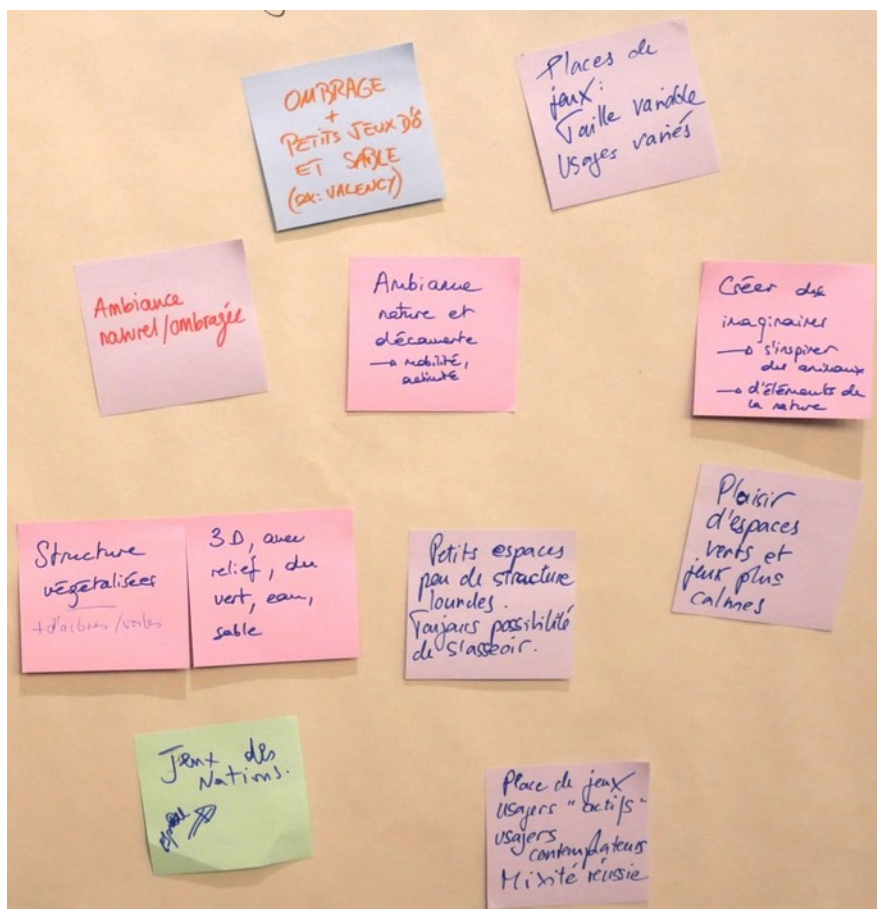 OMBRAGE
+
PETITS JEUX D'Ô
ET SABLE
(ex: VALENCY)
Places de
jeux:
Taille variable
Usages variés
Ambiance
naturel/ombragée
Ambiance
nature et
découverte
→ mobilité,
activité
Créer des
imaginaires
→ s'inspirer
des animaux
→ d'éléments de
la nature
Structure
végétalisées
+ d'arbres/voiles
3D, avec
relief, du
vert, eau,
sable
Petits espaces
peu de structure
lourdes.
Toujours possibilité
de s'asseoir.
Plaisir
d'espaces
verts et
jeux plus
calmes
Jeux des
Nations.
Place de jeux
usagers "actifs"
usagers
contemplateurs
Mixité réussie